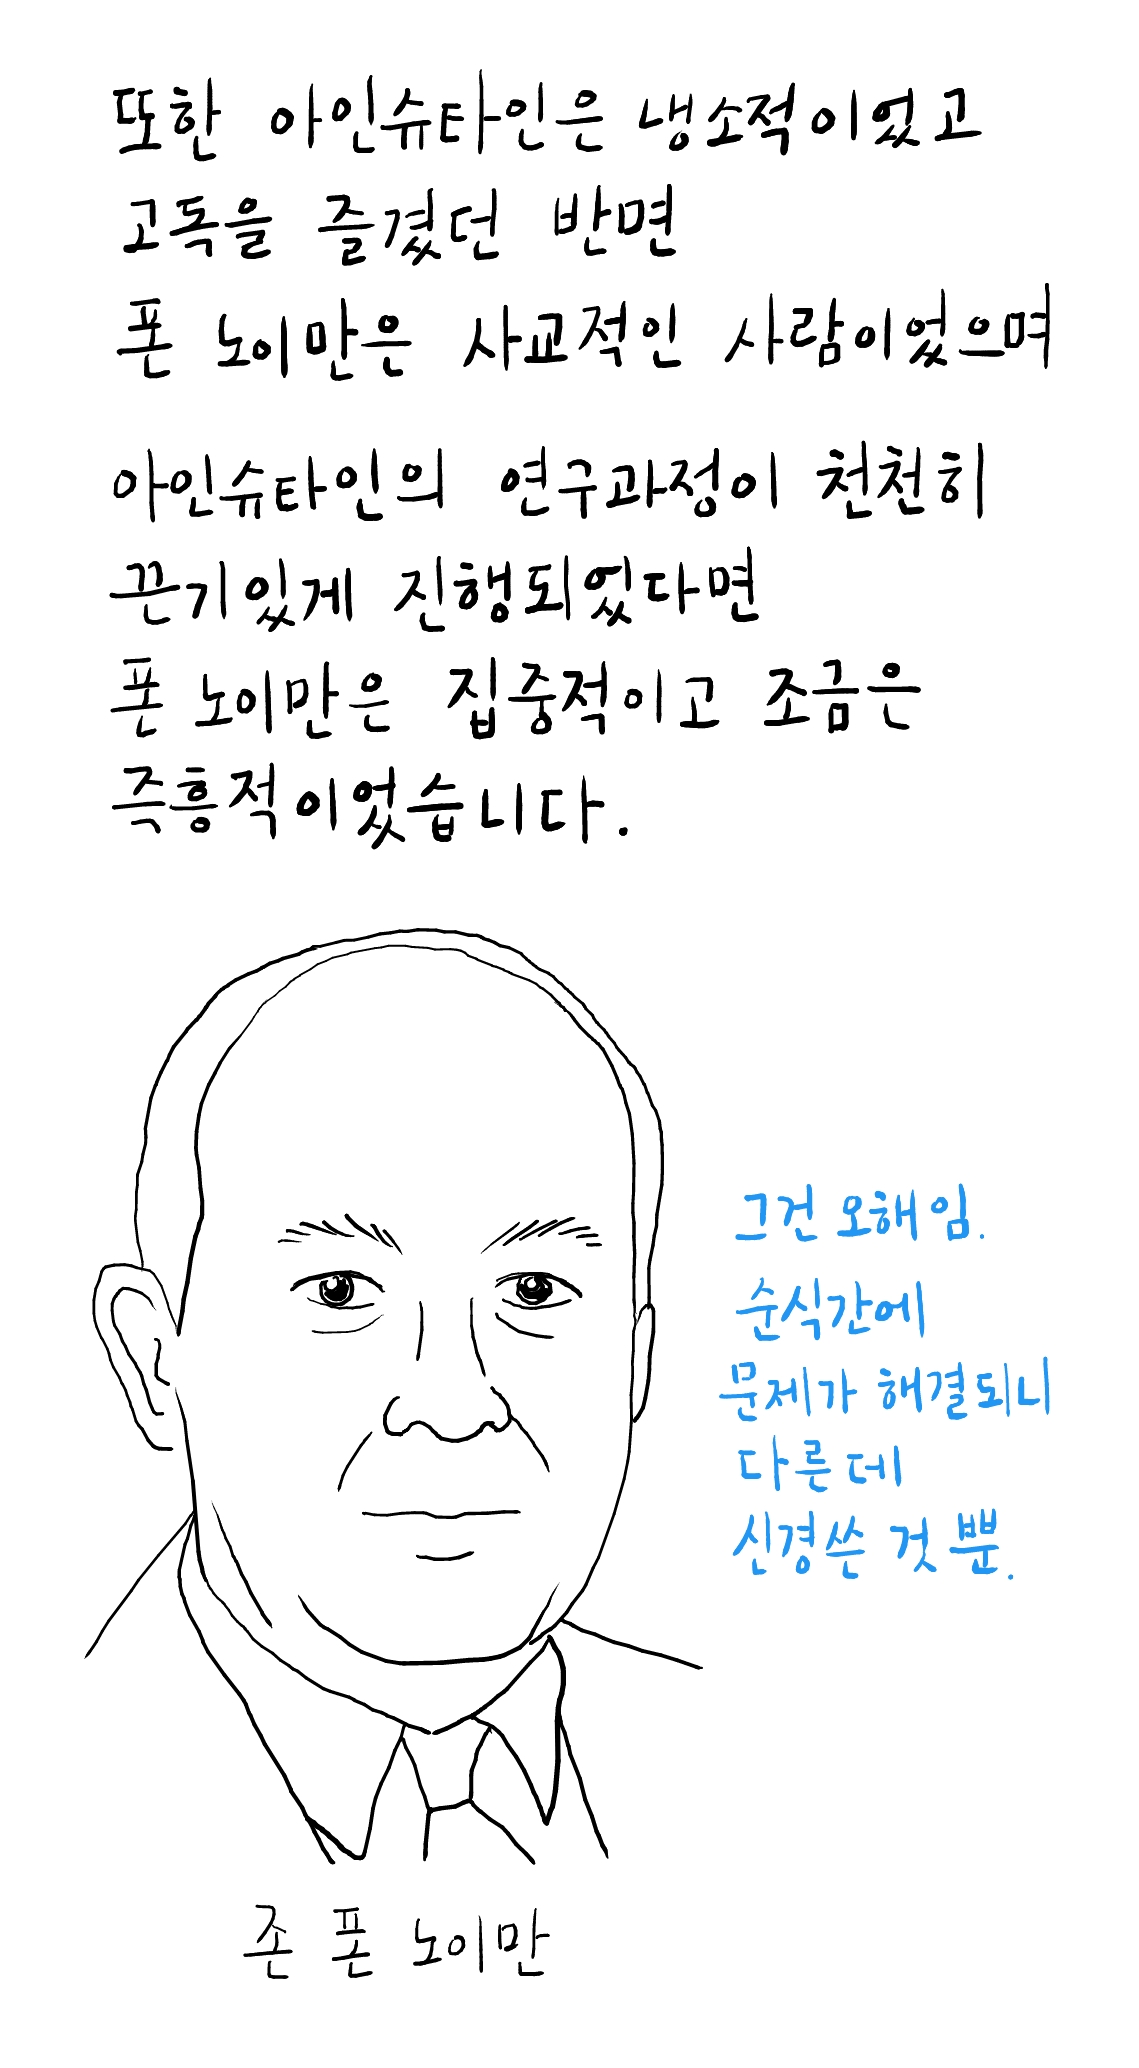 또한 아인슈타인은 냉소적이었고
고독을 즐겼던 반면
폰 노이만은 사교적인 사람이었으며
아인슈타인의 연구과정이 천천히
끈기있게 진행되었다면
폰 노이만은 집중적이고 조금은
즉흥적이었습니다.
그건 오해임.
순식간에
문제가 해결되니
다른데
신경쓴 것 뿐.
존 폰 노이만